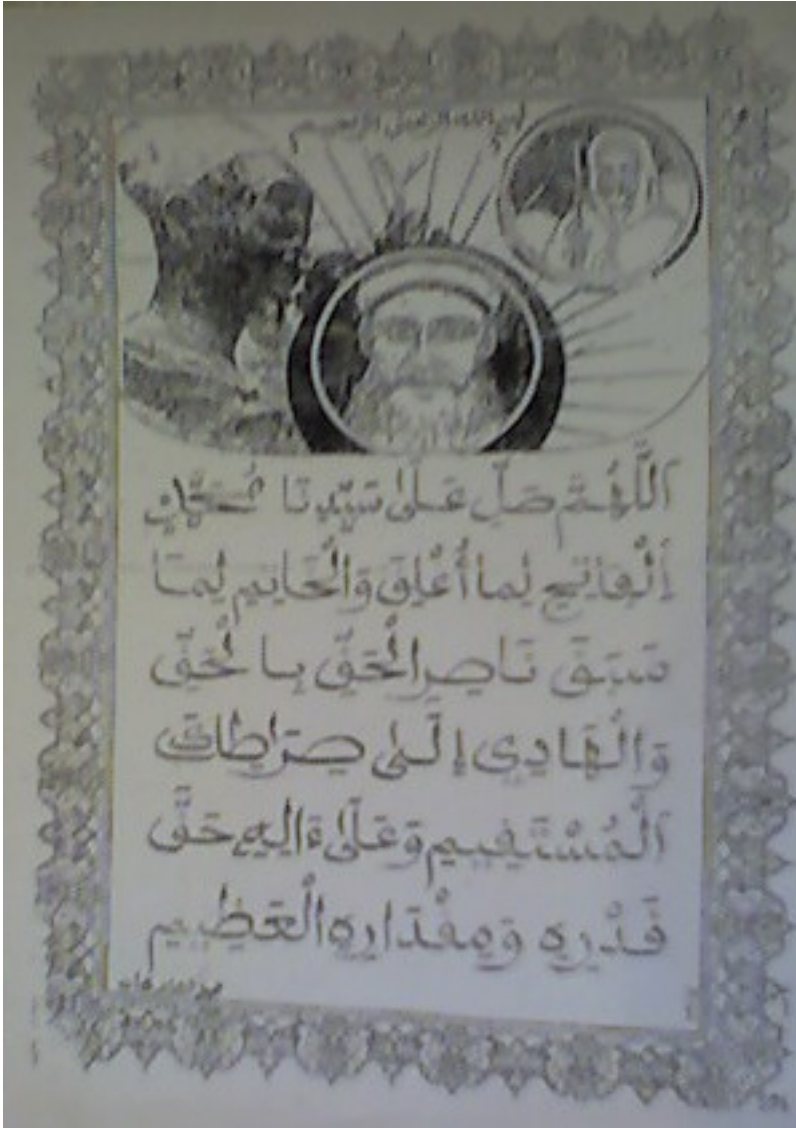 بسم الله الرحمن الرحيم
اَللَّهُمَّ صَلِّ عَلَىٰ سَيِّدِنَا مُحَمَّدٍ
اِلْفَاتِحِ لِمَا أُغْلِقَ وَالْخَاتِمِ لِمَا
سَبَقَ نَاصِرِ الْحَقِّ بِالْحَقِّ
وَالْهَادِي إِلَىٰ صِرَاطِكَ
اَلْمُسْتَقِيمِ وَعَلَىٰ ءَالِهِ حَقَّ
قَدْرِهِ وَمِقْدَارِهِ الْعَظِيمِ